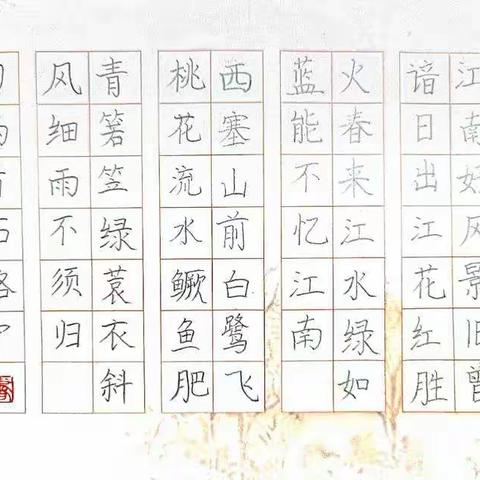 江南好风景旧曾
谙日出江花红胜
火春来江水绿如
蓝能不忆江南
西塞山前白鹭飞
桃花流水鳜鱼肥
青箬笠绿蓑衣斜
风细雨不须归